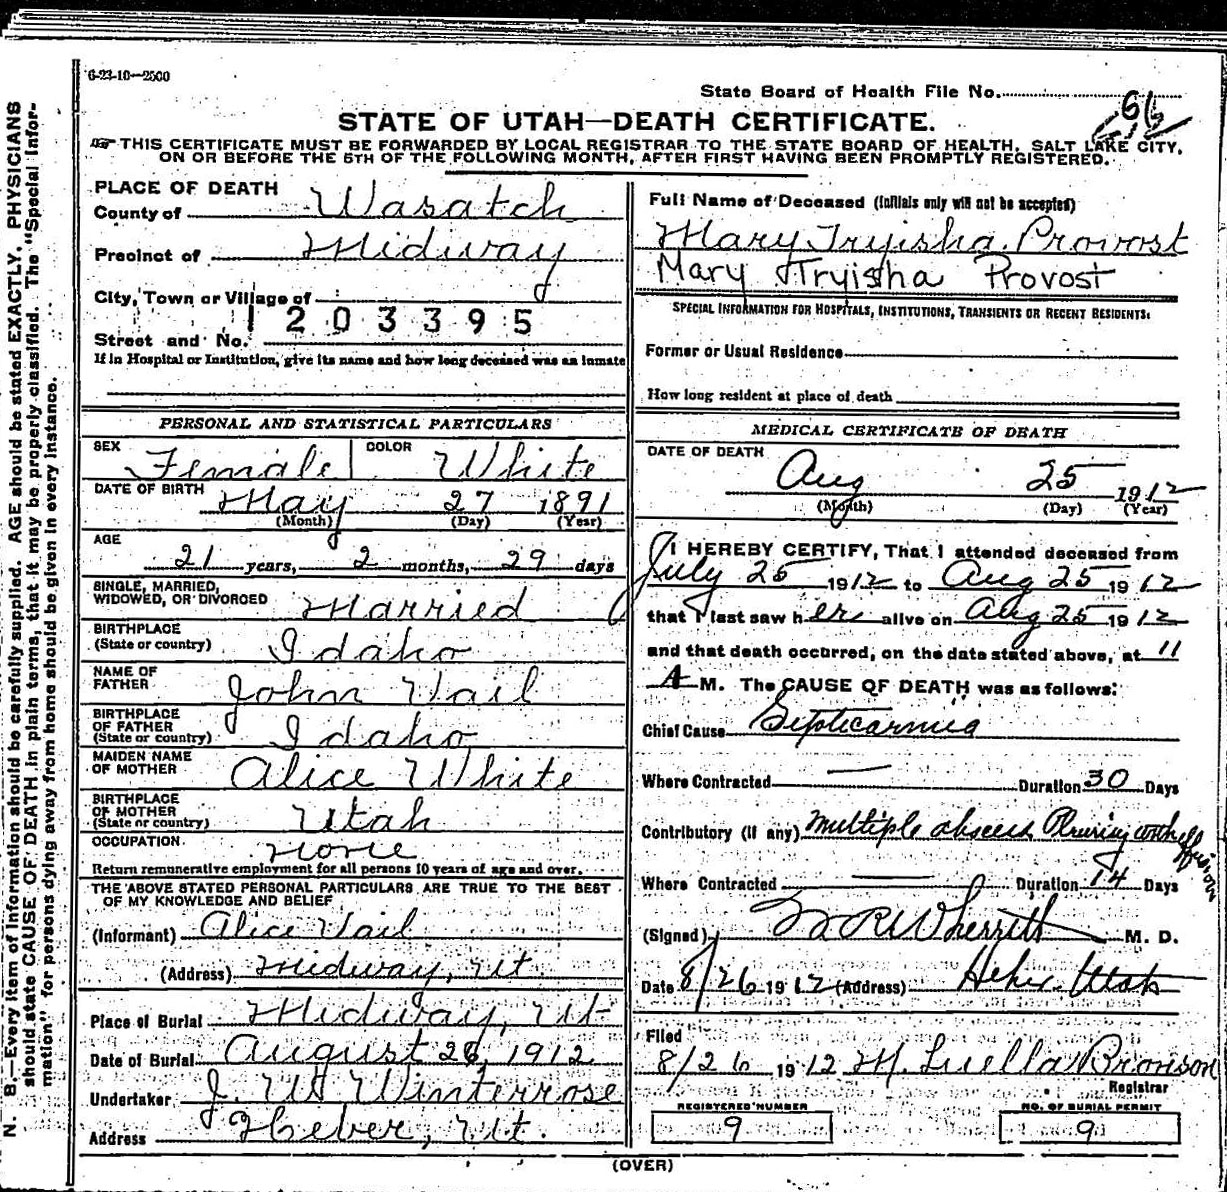 6-23-10—2500
State Board of Health File No.
61
STATE OF UTAH—DEATH CERTIFICATE.
THIS CERTIFICATE MUST BE FORWARDED BY LOCAL REGISTRAR TO THE STATE BOARD OF HEALTH, SALT LAKE CITY,
ON OR BEFORE THE 5TH OF THE FOLLOWING MONTH, AFTER FIRST HAVING BEEN PROMPTLY REGISTERED.
PLACE OF DEATH
County of Wasatch
Precinct of Midway
City, Town or Village of
1203395
Street and No.
If in Hospital or Institution, give its name and how long deceased was an inmate
PERSONAL AND STATISTICAL PARTICULARS
SEX Female COLOR White
DATE OF BIRTH May 27 1891
(Month) (Day) (Year)
AGE
21 years, 2 months, 29 days
SINGLE, MARRIED,
WIDOWED, OR DIVORCED Married
BIRTHPLACE
(State or country) Idaho
NAME OF
FATHER John Vail
BIRTHPLACE
OF FATHER
(State or country) Idaho
MAIDEN NAME
OF MOTHER Alice White
BIRTHPLACE
OF MOTHER
(State or country) Utah
OCCUPATION None
Return remunerative employment for all persons 10 years of age and over.
THE ABOVE STATED PERSONAL PARTICULARS ARE TRUE TO THE BEST
OF MY KNOWLEDGE AND BELIEF
(Informant) Alice Vail
(Address) Midway, Ut
Place of Burial Midway, Ut
Date of Burial August 26, 1912
Undertaker J. W. Winterrose
Address Heber, Ut.
Full Name of Deceased (Initials only will not be accepted)
Mary Tryisha Provost
Mary Tryisha Provost
SPECIAL INFORMATION FOR HOSPITALS, INSTITUTIONS, TRANSIENTS OR RECENT RESIDENTS:
Former or Usual Residence
How long resident at place of death
MEDICAL CERTIFICATE OF DEATH
DATE OF DEATH
Aug 25 1912
(Month) (Day) (Year)
I HEREBY CERTIFY, That I attended deceased from
July 25 1912 to Aug 25 1912
that I last saw her alive on Aug 25 1912
and that death occurred, on the date stated above, at 11
A M. The CAUSE OF DEATH was as follows:
Chief Cause Septicaemia
Where Contracted — Duration 30 Days
Contributory (if any) Multiple abscess Pleurisy with effusion
Where Contracted — Duration 14 Days
(Signed) Wherritt M. D.
Date 8/26 1912 (Address) Heber Utah
Filed
8/26 1912 M. Luella Bronson
Registrar
REGISTERED NUMBER
9
NO. OF BURIAL PERMIT
9
(OVER)
N. B.—Every item of information should be carefully supplied. AGE should be stated EXACTLY. PHYSICIANS
should state CAUSE OF DEATH in plain terms, that it may be properly classified. The "Special Infor-
mation" for persons dying away from home should be given in every instance.